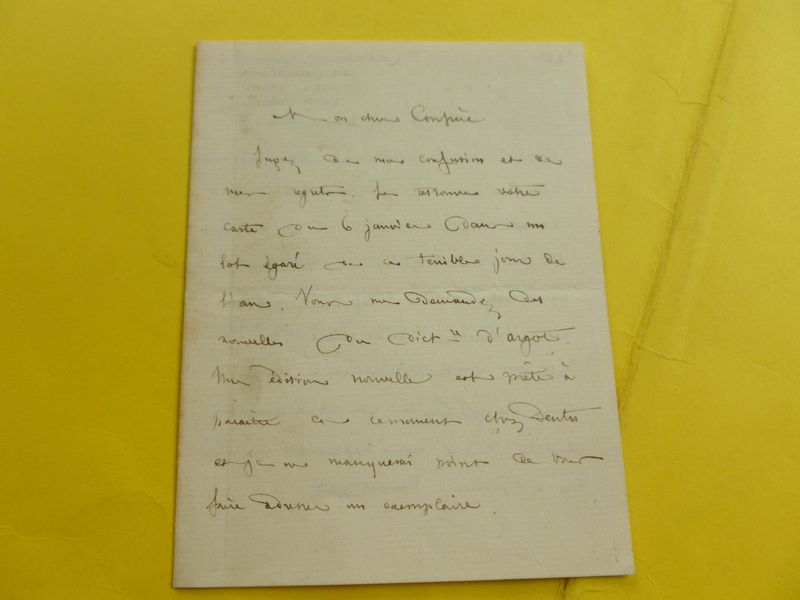 Mon cher Confrère
Jugez de ma confusion et de
mes regrets. Je retrouve votre
carte du 6 janvier dans un
lot égaré de ce terrible jour de
l'an. Vous me demandez des
nouvelles du dict re d'argot.
Une édition nouvelle est prête à
paraître en ce moment chez Dentu
et je ne manquerai point de vous
faire adresser un exemplaire.